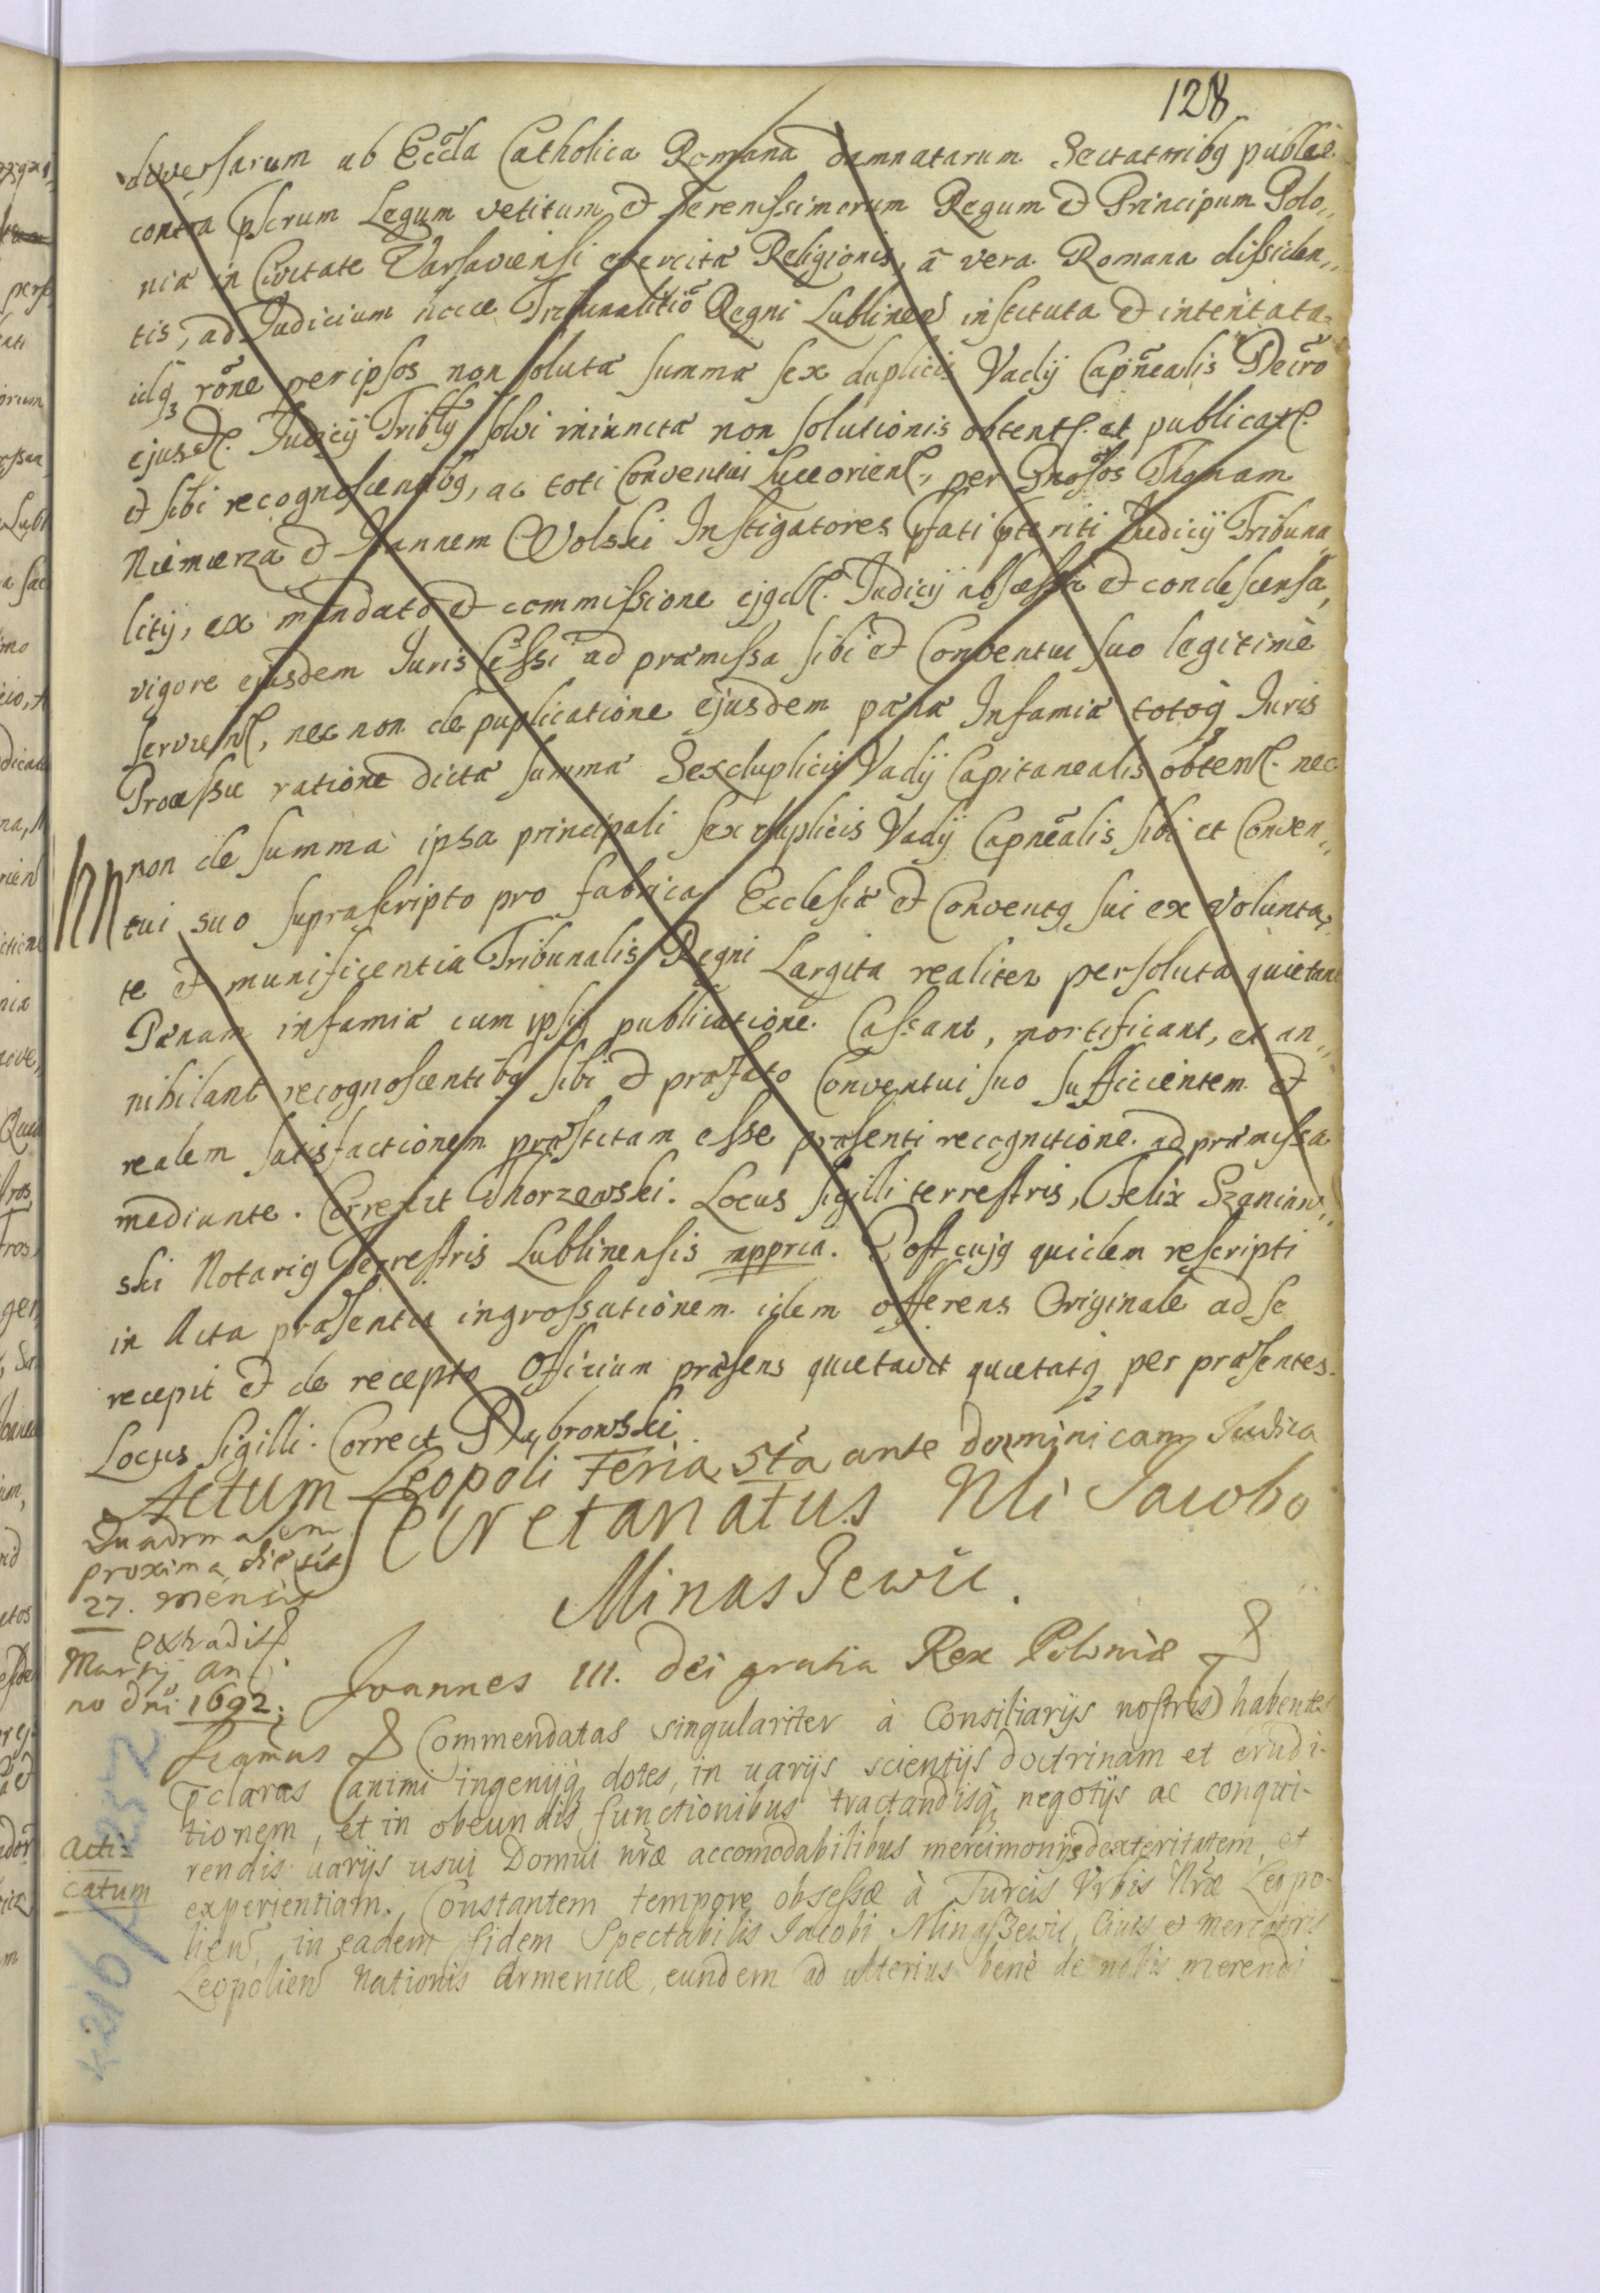 128
diversarum ab Eccla Catholica Romana damnatarum Sectatoribq publae
contra pscrum Legum vetitum et Serenissimorum Regum et Principum Polo„
niæ in Civitate Varsaviensi exercitæ Religionis, â vera Romana dissiden„
tis, ad Judicium Regni Lublinen instituta et intentata
idq rône per ipsos non solutæ summæ sex duplicis Vadij Capnealis Decro
ejusd. Judicij Triblij solvi iniunctæ non solutionis obtent. et publicat.
et sibi recognoscentibq, ac toti Conventui Luceorien., per Gnosos Thomam
Niemierza et Joannem Wolski Instigatores pfati pteriti Judicij Tribuna„
litij, ex mandato et commissione ejqd. Judicij absessa et condescensa,
vigore ejusdem Juris Cessi ad præmissa sibi et Conventui suo legitimè
servien, nec non de puplicatione ejusdem pænæ Infamiæ totoq Juris
Processu ratione dictæ summæ Sexduplicis Vadij Capitanealis obten. nec
non de summa ipsa principali sex duplicis Vadij Capnealis sibi et Conven„
tui suo suprascripto pro fabrica Ecclesiæ et Conventq sui ex Volunta„
te et munificentia Tribunalis Regni Largita realiter persoluta quietant
Pænam infamiæ cum ipsiq publicatione. Cassant, mortificant, et an„
nihilant recognoscentibq sibi et præfato Conventui suo sufficientem et
realem satisfactionem præstitam esse præsenti recognitione ad præmissa
mediante. Correxit Thorzewski. Locus sigilli terrestris, Felix Szaniaw„
ski Notariq Terrestris Lublinensis mppria. Post cujq quidem rescripti
in Acta præsentia ingrossationem idem offerens Originale ad se
recepit et de recepto Officium præsens quietavit quietatq per præsentes.
Locus Sigilli. Correct Dąbrowski
Actum Leopoli Feria 5ta ante dominicam Judica
Quadrmalem
proxima die
27. mensis
Martij an
no dni 1692.
extradit
Servetanatus Nli Jacobo
Minasiewic.
Joannes III. Dei gratia Rex Poloniæ
Commendatas singulariter à Consiliarijs nostris habentes
pclaras animi ingenijq dotes, in varijs scientijs doctrinam et erudi-
tionem, et in obeundis functionibus tractandisq negotijs ac conqui-
rendis varijs usui Domui nræ accomodabilibus mercimonijs dexteritatem, et
experientiam. Constantem tempore obsessæ à Turcis Urbis Nræ Leopo-
lien, in eadem fidem Spectabilis Jacobi Minasiewic, Civis et mercatoris
Leopolien Nationis Armenicæ, eundem ad ulterius bene de nobis merendi
Acti-
catum